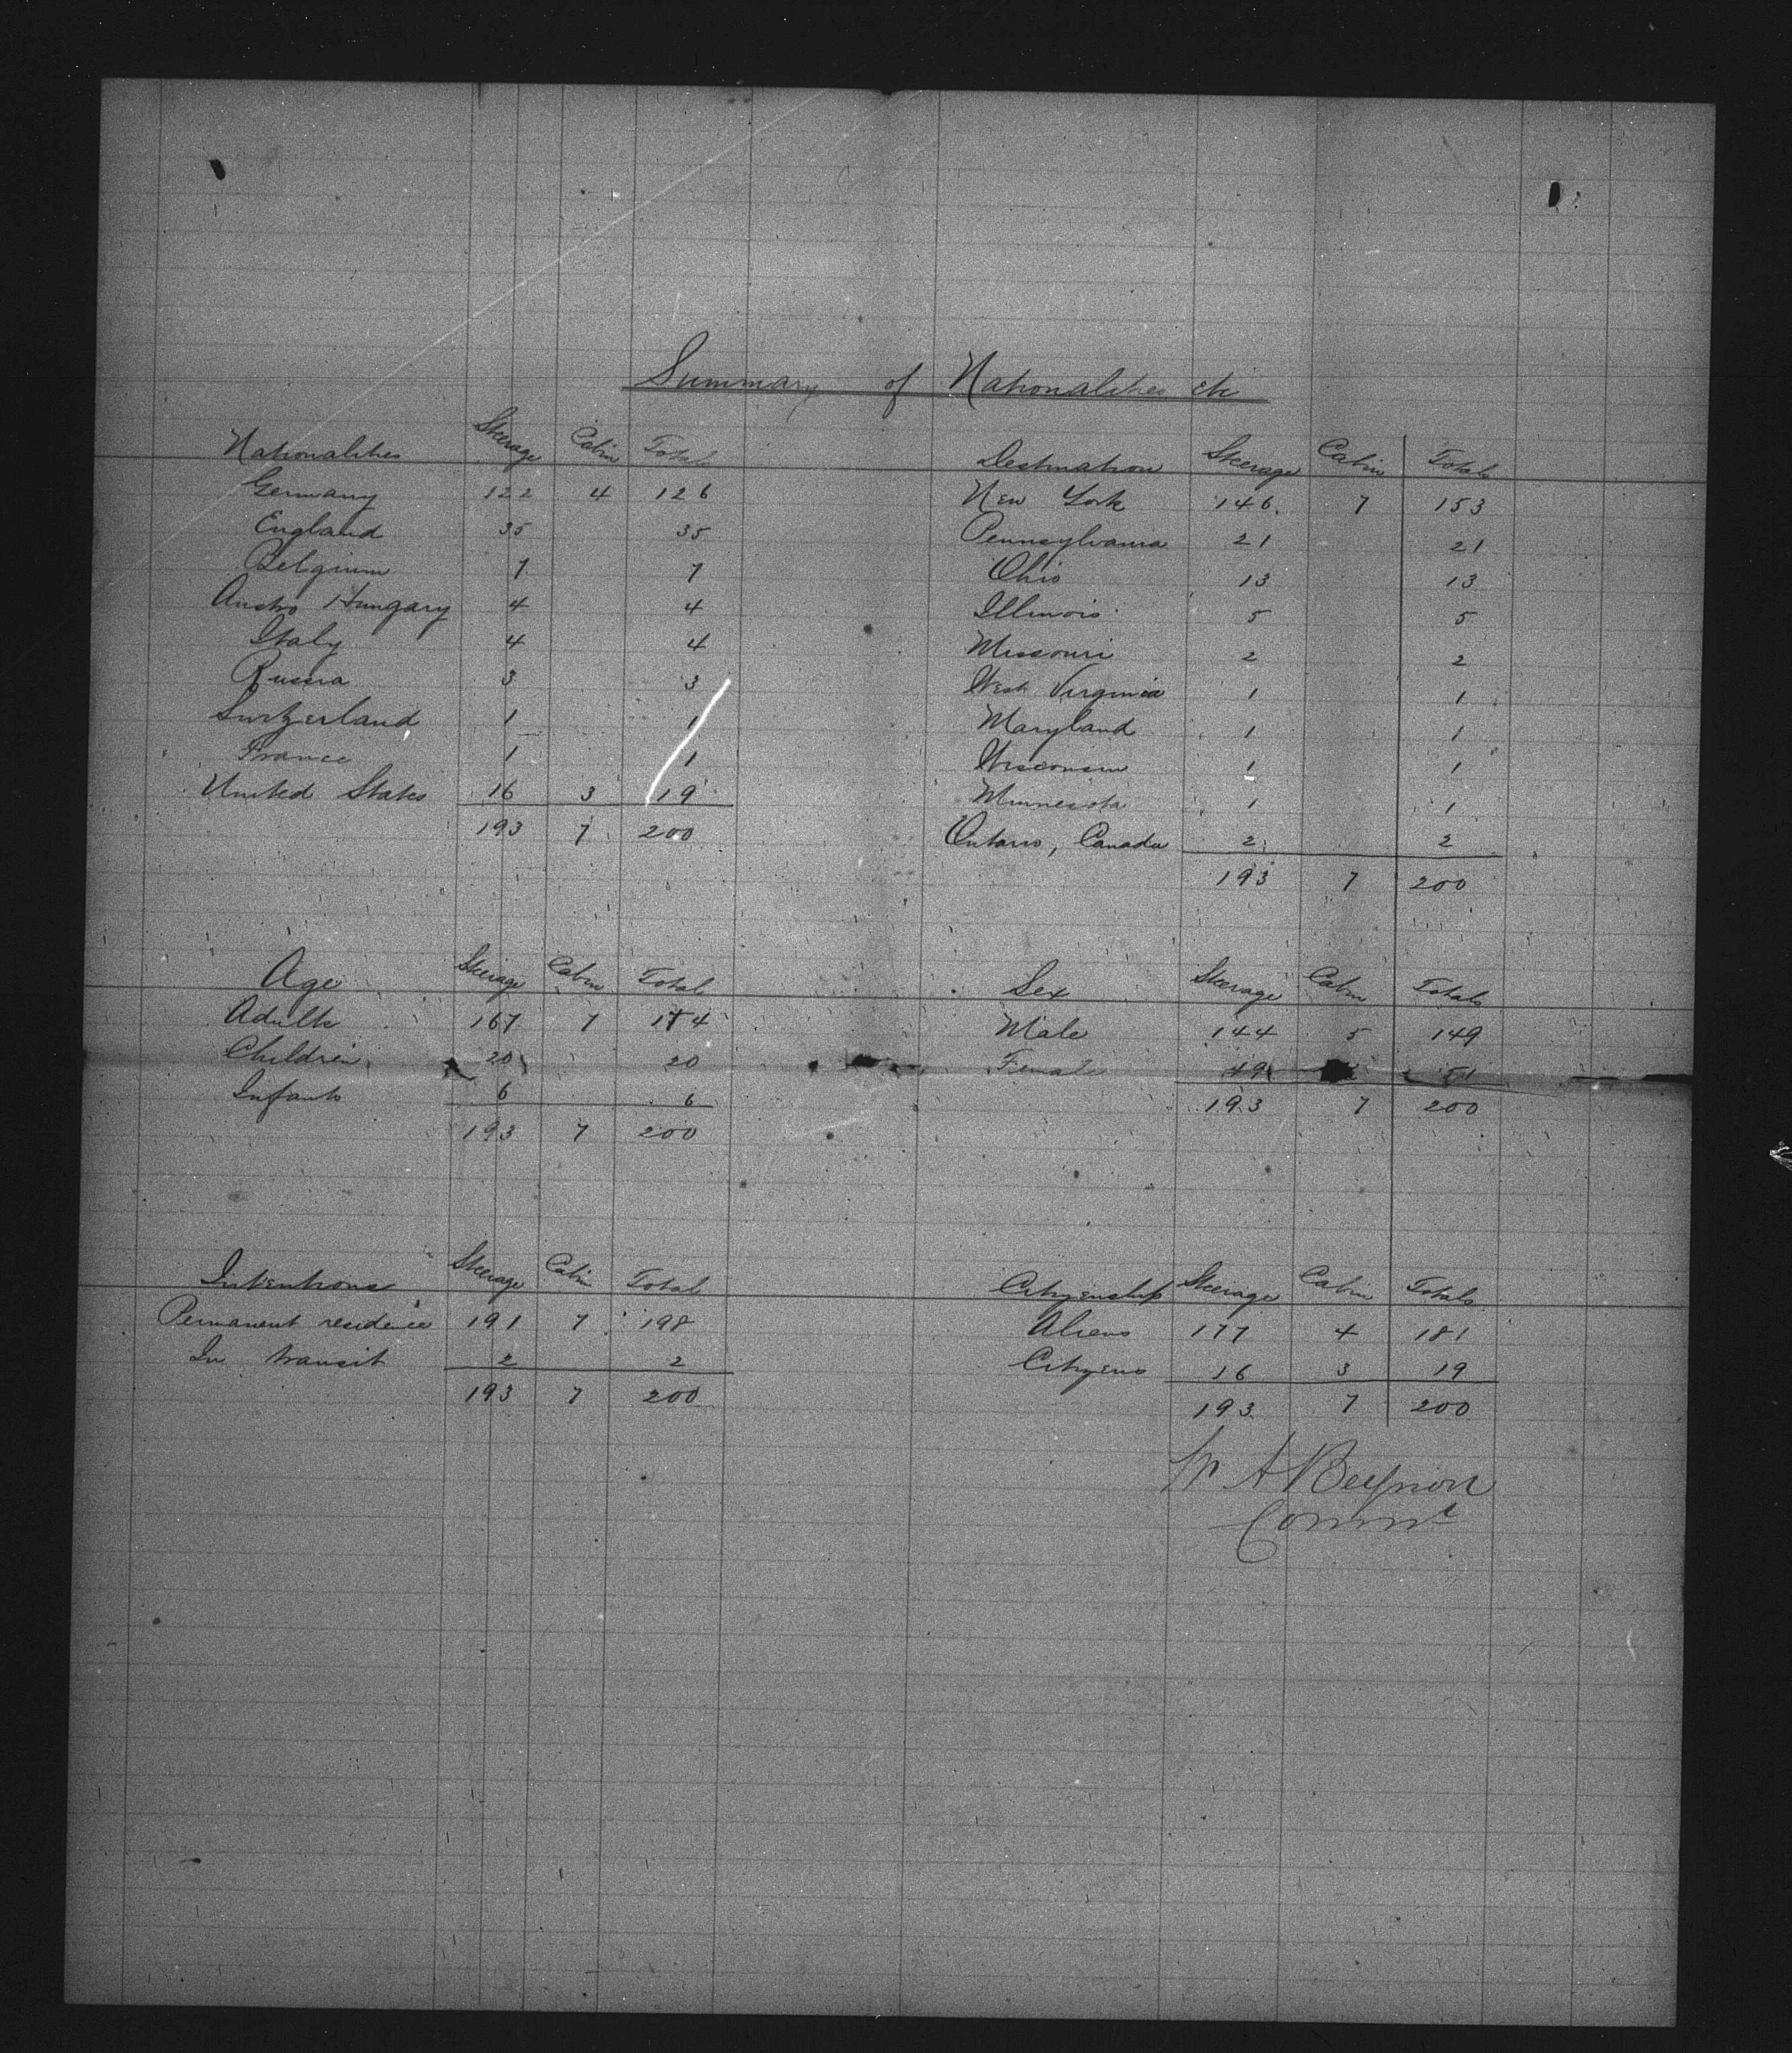 Summary of Nationalities etc
Nationalities Steerage Cabin Totals
Germany 122 4 126
England 35 35
Belgium 7 7
Austro Hungary 4 4
Italy 4 4
Russia 3 3
Switzerland 1 1
France 1 1
United States 16 3 19
193 7 200
Destination Steerage Cabin Totals
New York 146 7 153
Pennsylvania 21 21
Ohio 13 13
Illinois 5 5
Missouri 2 2
West Virginia 1 1
Maryland 1 1
Wisconsin 1 1
Minnesota 1 1
Ontario, Canada 2 2
193 7 200
Age Steerage Cabin Total
Adults 167 7 174
Children 20 20
Infants 6 6
193 7 200
Sex Steerage Cabin Totals
Male 144 5 149
Female 49 51
193 7 200
Intentions Steerage Cabin Total
Permanent residence 191 7 198
In transit 2 2
193 7 200
Citizenship Steerage Cabin Totals
Aliens 177 4 181
Citizens 16 3 19
193 7 200